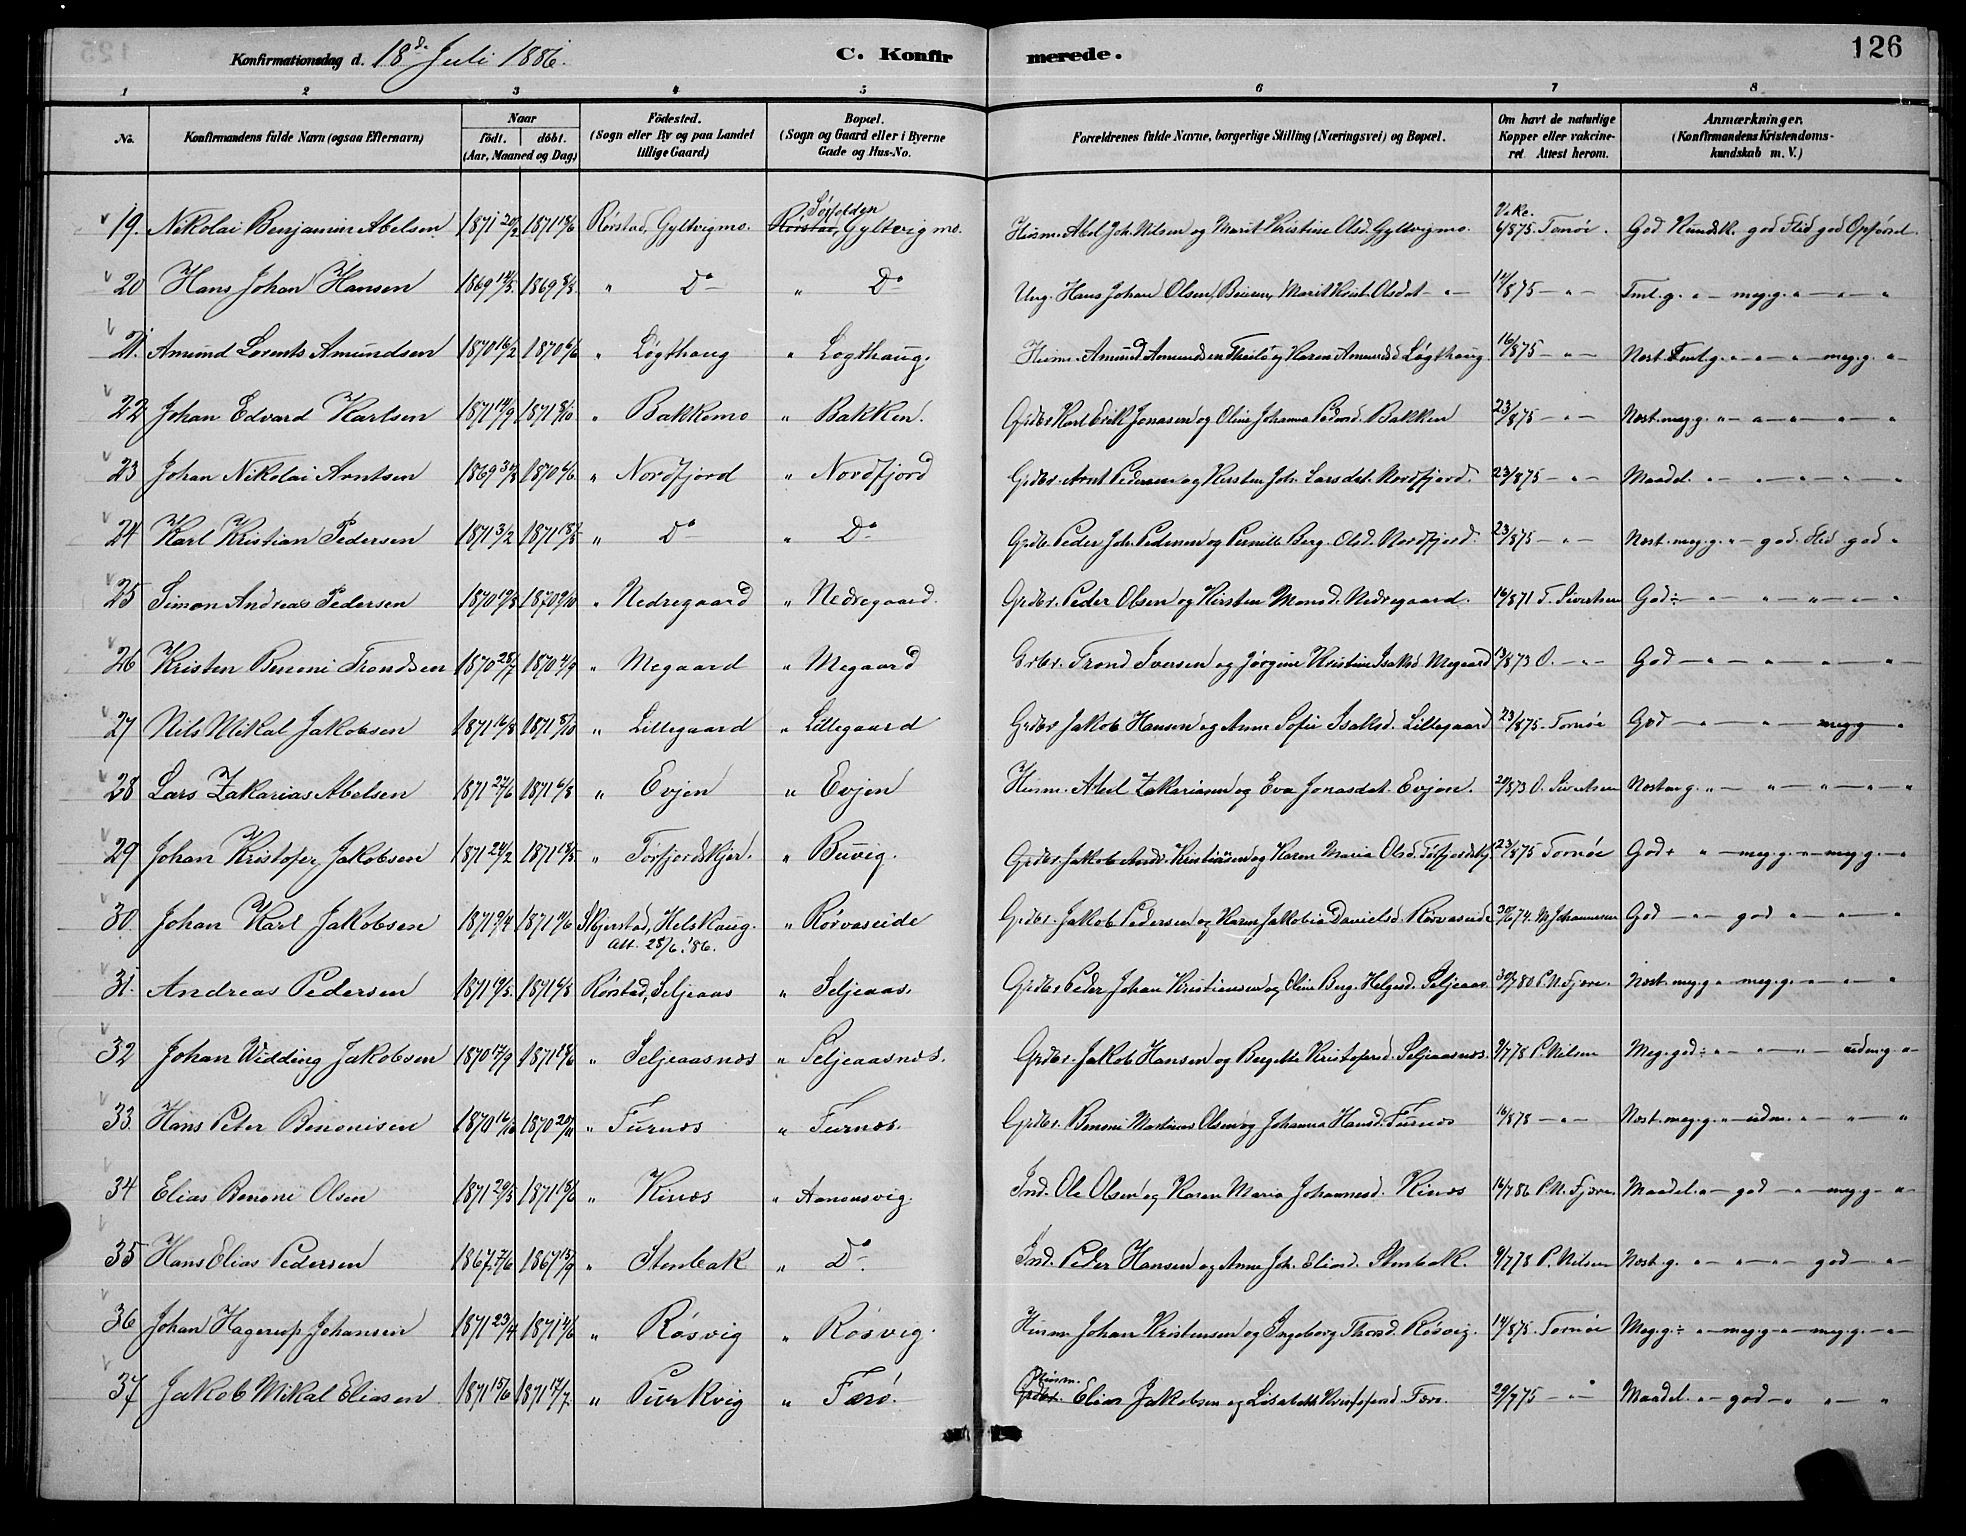 126
Konfirmationsdag d. 18de Juli 1886.
C. Konfirmerede.
1 2 3 4 5 6 7 8
No. Konfirmandens fulde Navn (ogsaa Efternavn) Naar født. døbt. (Aar, Maaned og Dag) Födested. (Sogn eller By og paa Landet tillige Gaard) Bopæl. (Sogn og Gaard eller i Byerne Gade og Hus-No. Forældrenes fulde Navne, borgerlige Stilling (Næringsvei) og Bopæl. Om havt de naturlige Kopper eller vakcineret. Attest herom. Anmærkninger. (Konfirmandens Kristendomskundskab m. V.)
19. Nikolai Benjamin Abelsen 1871 20/2 1871 18/6 Rørstad, Gyltvigmo. Sørfolden Rørstad, Gyltvigmo. Husm. Abel Joh. Nilsen og Marit Kristine Olsd. Gyltvigmo. Vakc. 6/875 Tornøe. God Kundsk. god Flid god Opførsel
20 Hans Johan Hansen 1869 14/3. 1869 8/8. " Do " Do Ung. Hans Johan Olsen, Beiern, Marit Krist. Olsdat - " - 12/875 - " - Tml. g. " - meg. g. " - " - "
21. Amund Lorents Amundsen 1870 16/2 1870 6/6 " Løgthaug " Løgthaug. Husm. Amund Amundsen og Karen Amundsd Løgthaug. 16/875 - " - Nost. Tml. g. " - " - " meg. g. "
22 Johan Edvard Karlsen 1871 14/9 1871 8/10 " Bakkemo " Bakken. Grdbr Karl Erik Jonasen og Oline Johanna Pedersd. Bakken 23/875 - " - Nost. meg g. " - " - " - " - "
23 Johan Nikolai Arntsen 1869 1870 6/6. " Nordfjord " Nordfjord Grdbr. Arnt Pedersen og Kirsten Joh. Larsdat. Nordfjord. 23/875 - " - Maadel. " - " - " - " - "
24 Karl Kristian Pedersen 1871 3/2 1871 18/5 " Do " Do Grdb. Peder Joh. Pedersen og Pernille Berg. Olsd. Nordfjord. 23/875 - " - Nost. meg. g. " - god. Flid god "
25 Simon Andreas Pedersen 1870 19/8 1870 9/10 " Nedregaard " Nedregaard. Grdbr. Peder Olsen og Kirsten Monsd. Nedregaard. 16/871 T. Sivertsen God÷ - " - " - " - "
26 Kristen Benoni Trondsen 1870 28/7 1870 4/9 " Megaard " Megaard Grbr. Trond Iversen og Jørgine Kristine Isaksd Megaard 13/873 O. - " - God - " - " - " - "
27 Nils Mikal Jakobsen 1871 16/8 1871 8/10 " Lillegaard " Lillegaard Grdbr Jakob Hansen og Anne Sofie Isaksd. Lillegaard 23/875 Tornøe God - " - " meg g "
28 Lars Zakarias Abelsen 1871 27/6 1871 6/8 " Evjen " Evjen Husm. Abel Zakariasen og Eva Jonasdat. Evjen. 20/873 O. Sivertsen Nost. g. " - " - " - " - "
29 Johan Kristofer Jakobsen 1871 24/2 1871 18/5 " Tørfjordskjer. " Buvig. Grdbr. Jakob Andr. Kristiansen og Karen Maria Olsd. 23/875 Tornøe God+ " - meg. g. " - meg. g. - "
30. Johan Karl Jakobsen 1871 9/4 1871 11/6 Skjerstad, Helskaug. Att. 28/6 '86. " Rørvaseide Grdbr. Jakob Pedersen og Karen Jakobia Danielsd. Rørvaseide 30/674. M. Johannessen God - " - god " - " - "
31. Andreas Pedersen 1871 19/5. 1871 6/8 Rørstad, Seljeaas " Seljeaas. Grdbr Peder Johan Kristiansen og Oline Berg. Helgesd. Seljeaas 30/780 P. N. Fjære. Nost. meg g " meg. g. " - " - "
32 Johan Widding Jakobsen 1870 17/9 1871 18/6 " Seljeaasnes " Seljeaasnes. Grdbr. Jakob Hansen og Bergitte Kristofersd Seljeaasnes. 9/778 P. Nilsen Meg. god÷ " - " - " udm. g. " -
33. Hans Peter Benonisen 1870 16/10 1870 20/11 " Furnes " Furnes. Grdbr. Benoni Martinus Olsen og Johanna Hansd. Furnes 16/878 - " - Nost. meg. g. " udm. " - " - "
34 Elias Benoni Olsen 1871 29/3 1871 18/6 " Kines " Aanonsvig. Ind. Ole Olsen og Karen Maria Johannesd. Kines 16/786 P. N. Fjære. Maadel. " - god - " - meg. g. "
35 Hans Elias Pedersen 1867 7/6 1867 15/9 " Stenbak " Do Ind. Peder Hansen og Anne Joh. Eliasd. Stenbak. 9/778 P. Nilsen Nost. g. " - " - " god - "
36 Johan Hagerup Johansen 1871 23/4 1871 4/6 " Røsvig " Røsvig. Husm. Johan Kristensen og Ingeborg Thorsd. Røsvig. 14/875. Tornøe Meg. g÷ " - meg. g " - meg. g. - "
37 Jakob Mikal Eliasen. 1871 15/6 1871 17/7. " Purkvig " Færø. Husm. Grdbr. Elias Jakobsen og Lisabeth Kristofersd Færø. 29/775 - " - Maadel. " - god - " " - "